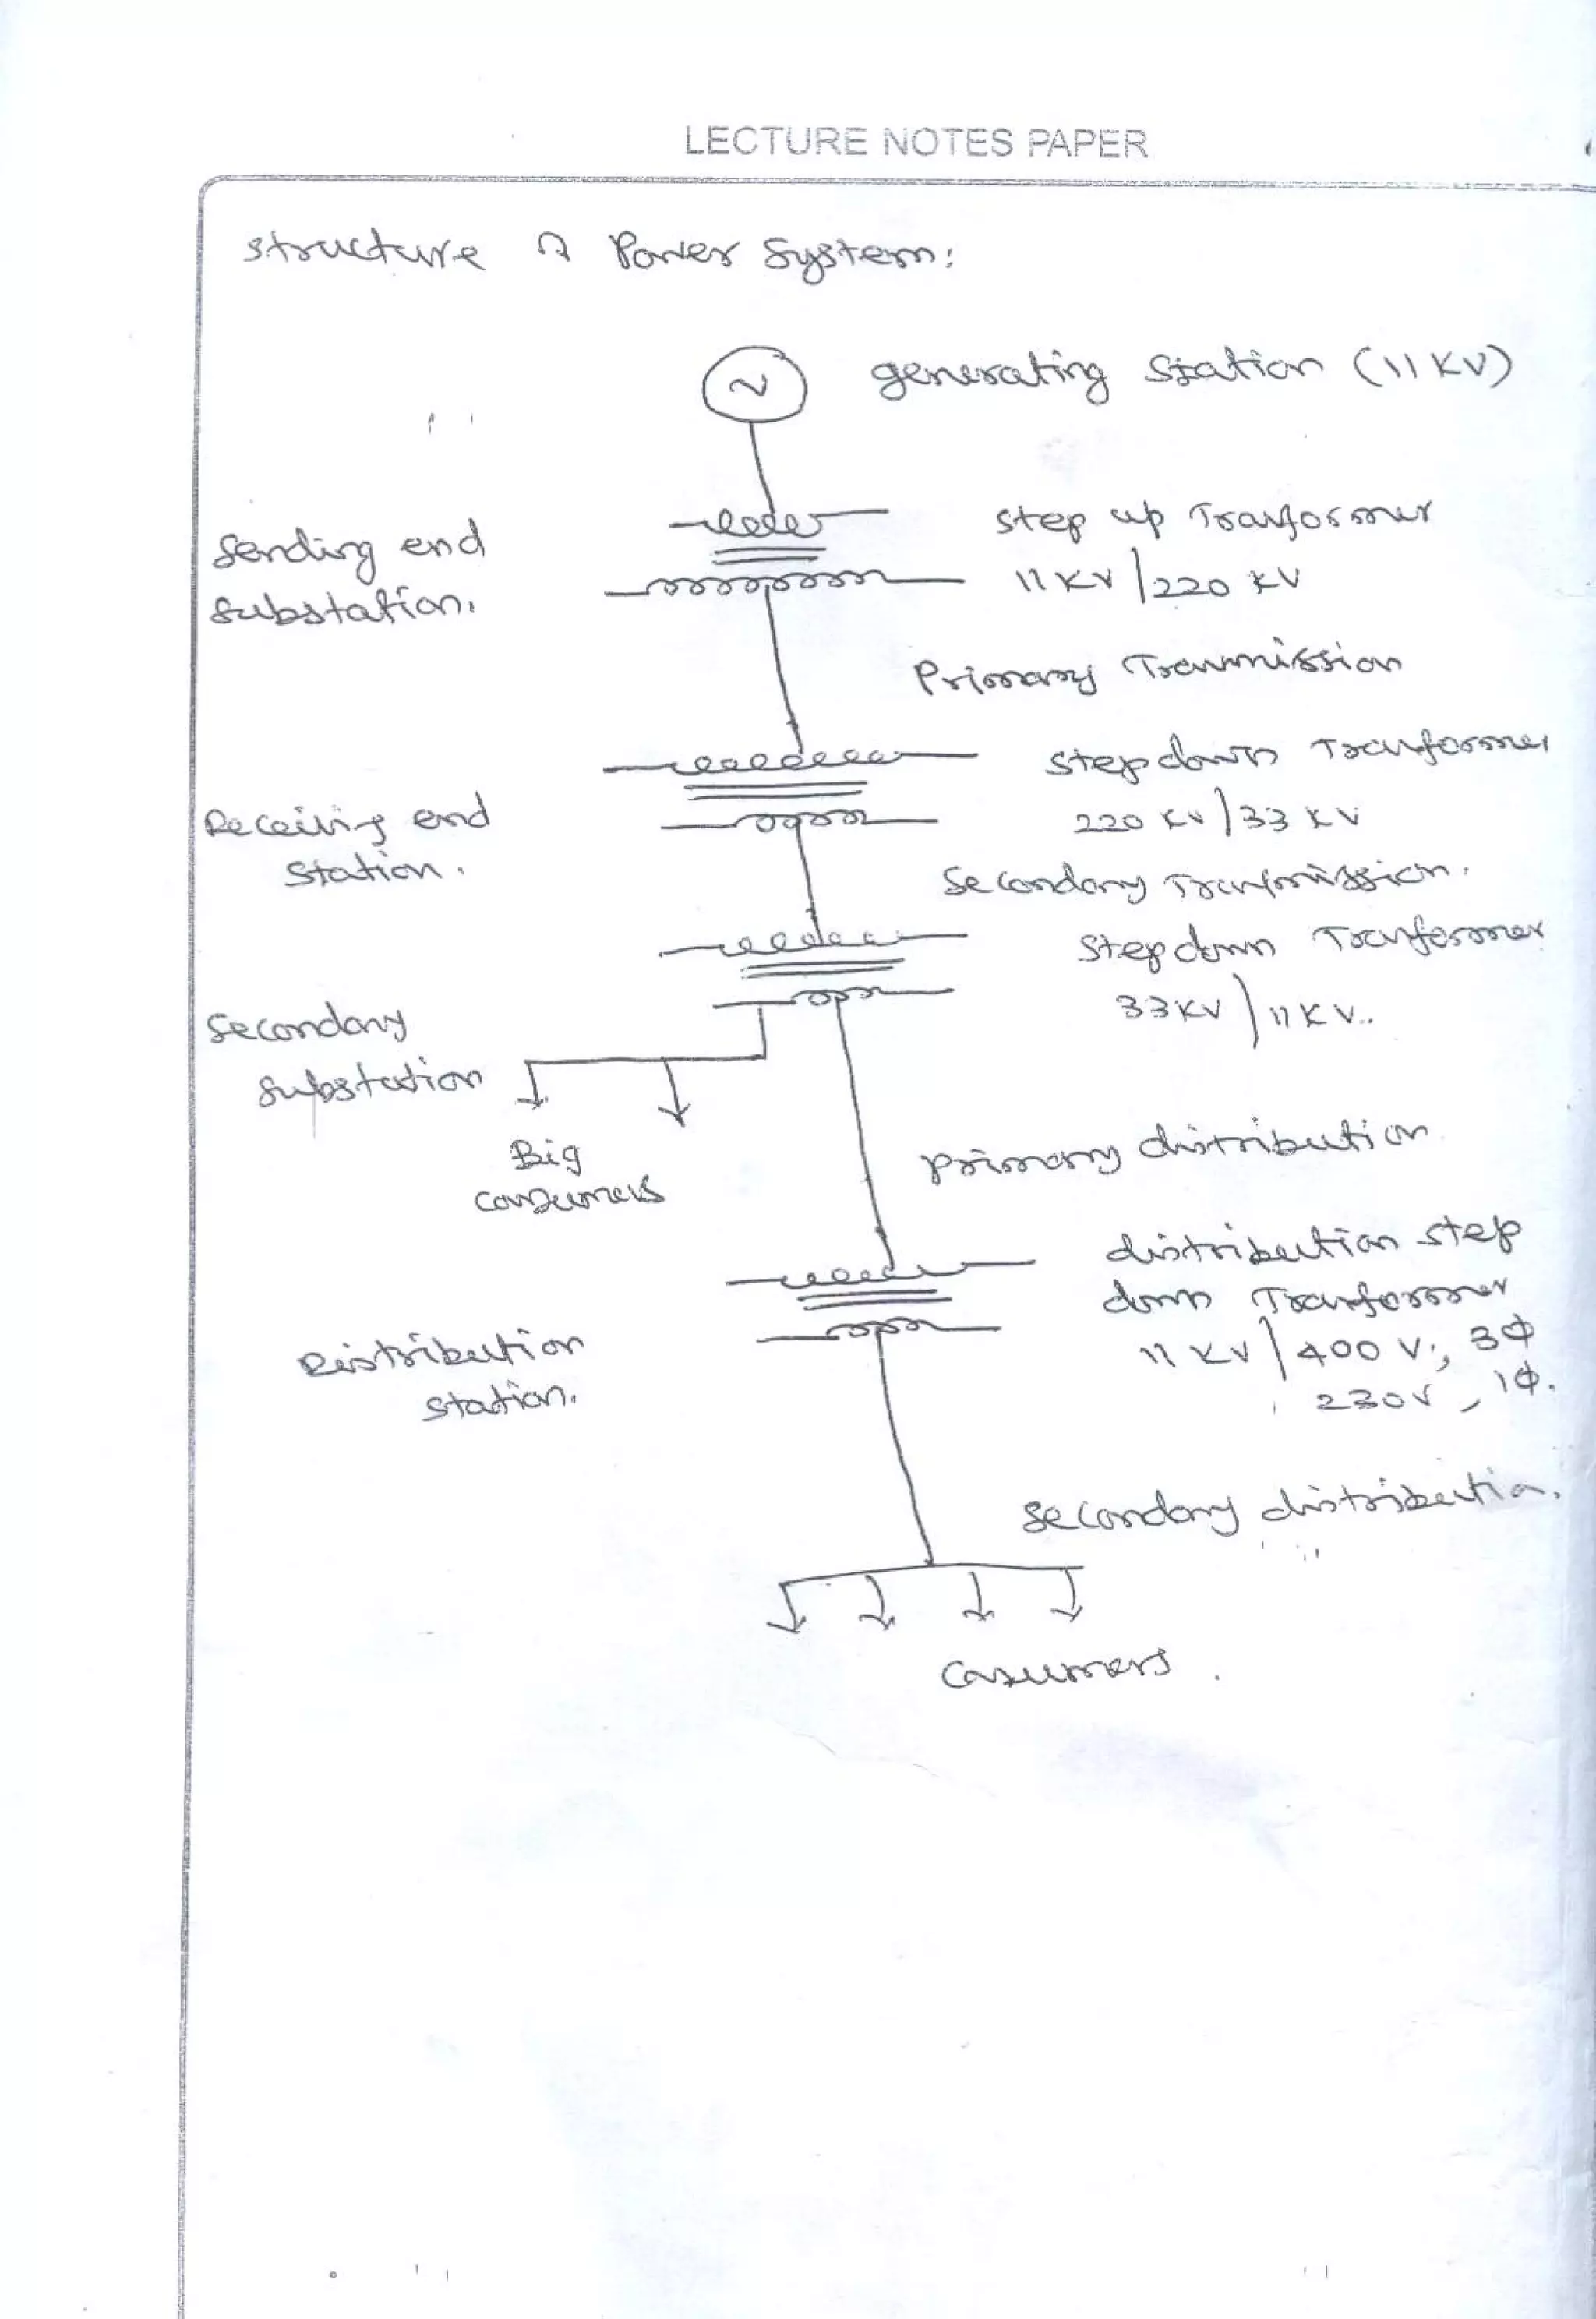 LECTURE NOTES PAPER
Structure of Power System:
generating Station (11 KV)
Sending end
Substation.
Step up Transformer
11 KV / 220 KV
Primary Transmission
Step down Transformer
220 KV / 33 KV
Receiving end
Station.
Secondary Transmission.
Step down Transformer
33 KV / 11 KV.
Secondary
Substation
Big
consumers
Primary distribution
distribution step
down Transformer
11 KV / 400 V, 3Φ
230V, 1Φ.
Distribution
Station.
Secondary distribution.
Consumers.